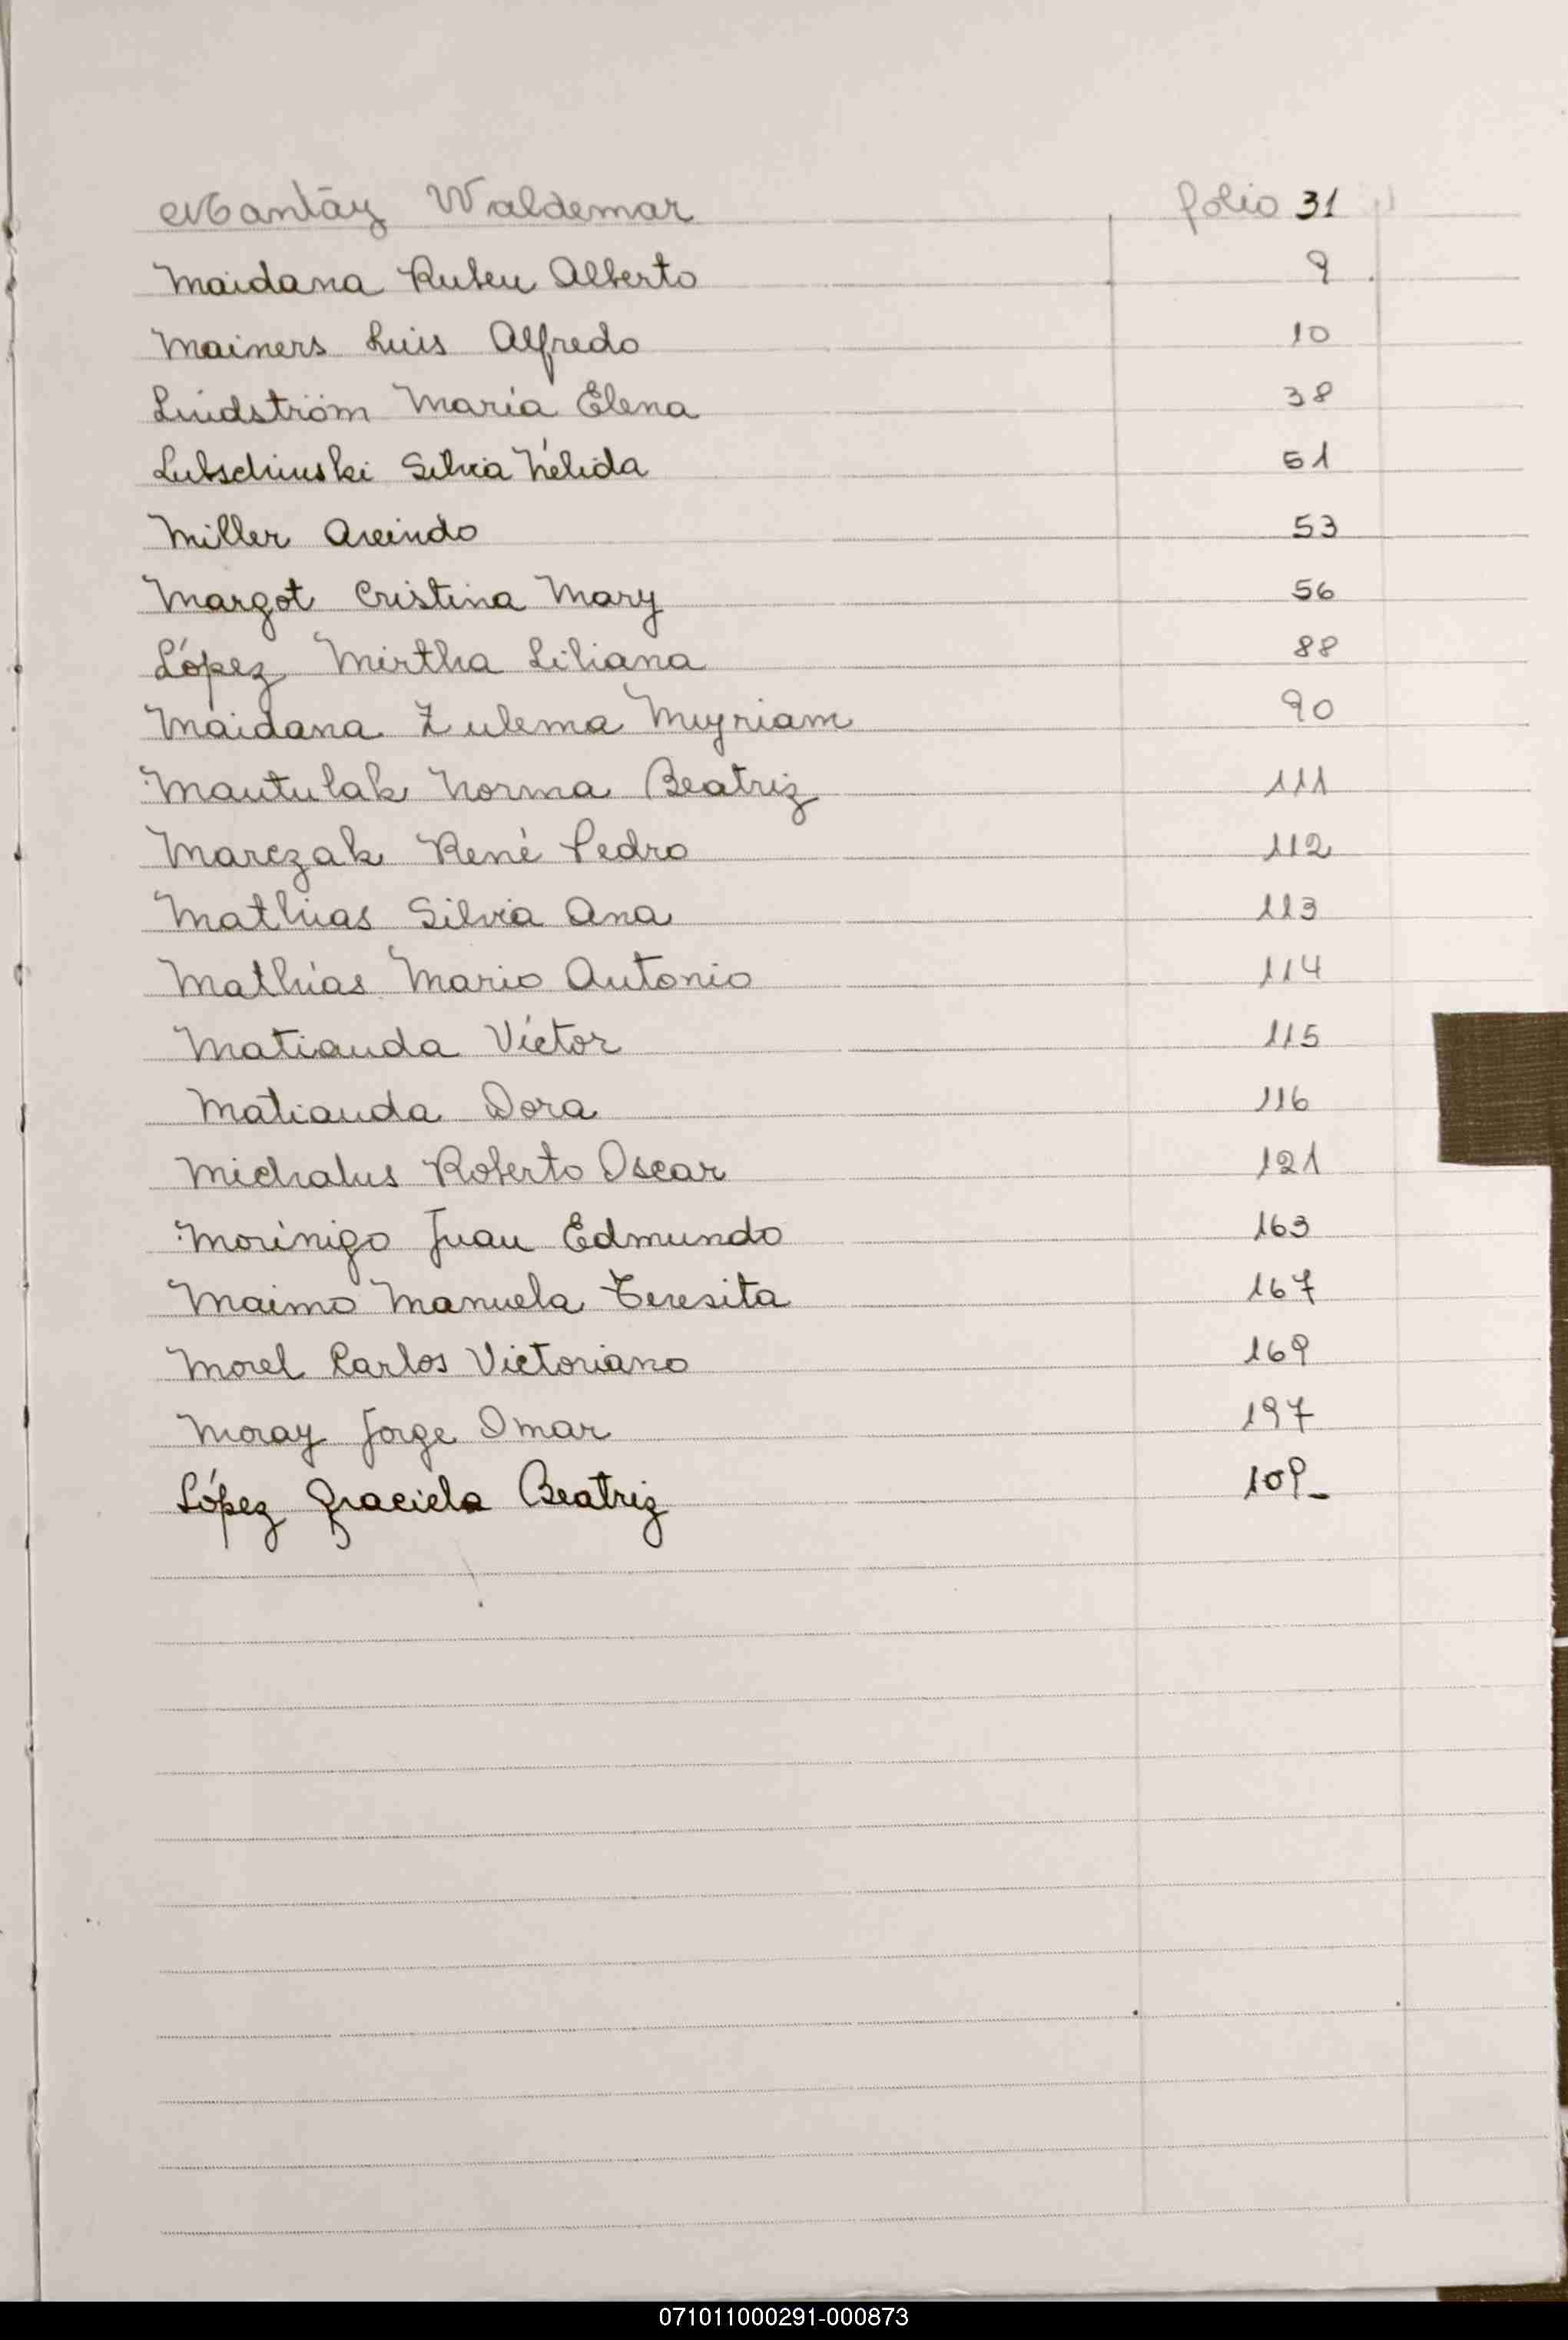 Mantay Waldemar folio 31
Maidana Ruben Alberto 9
Mainers Luis Alfredo 10
Lindström María Elena 38
Lubschinski Silvia Nélida 51
Miller Arcindo 53
Margot Cristina Mary 56
López Mirtha Liliana 88
Maidana Zulema Myriam 90
Mantulak Norma Beatriz 111
Marczak René Pedro 112
Mathias Silvia Ana 113
Mathías Mario Antonio 114
Matiauda Víctor 115
Matiauda Dora 116
Michalus Roberto Oscar 121
Morínigo Juan Edmundo 163
Maimo Manuela Teresita 167
Morel Carlos Victoriano 169
Moray Jorge Omar 197
López Graciela Beatriz 109_
071011000291-000873